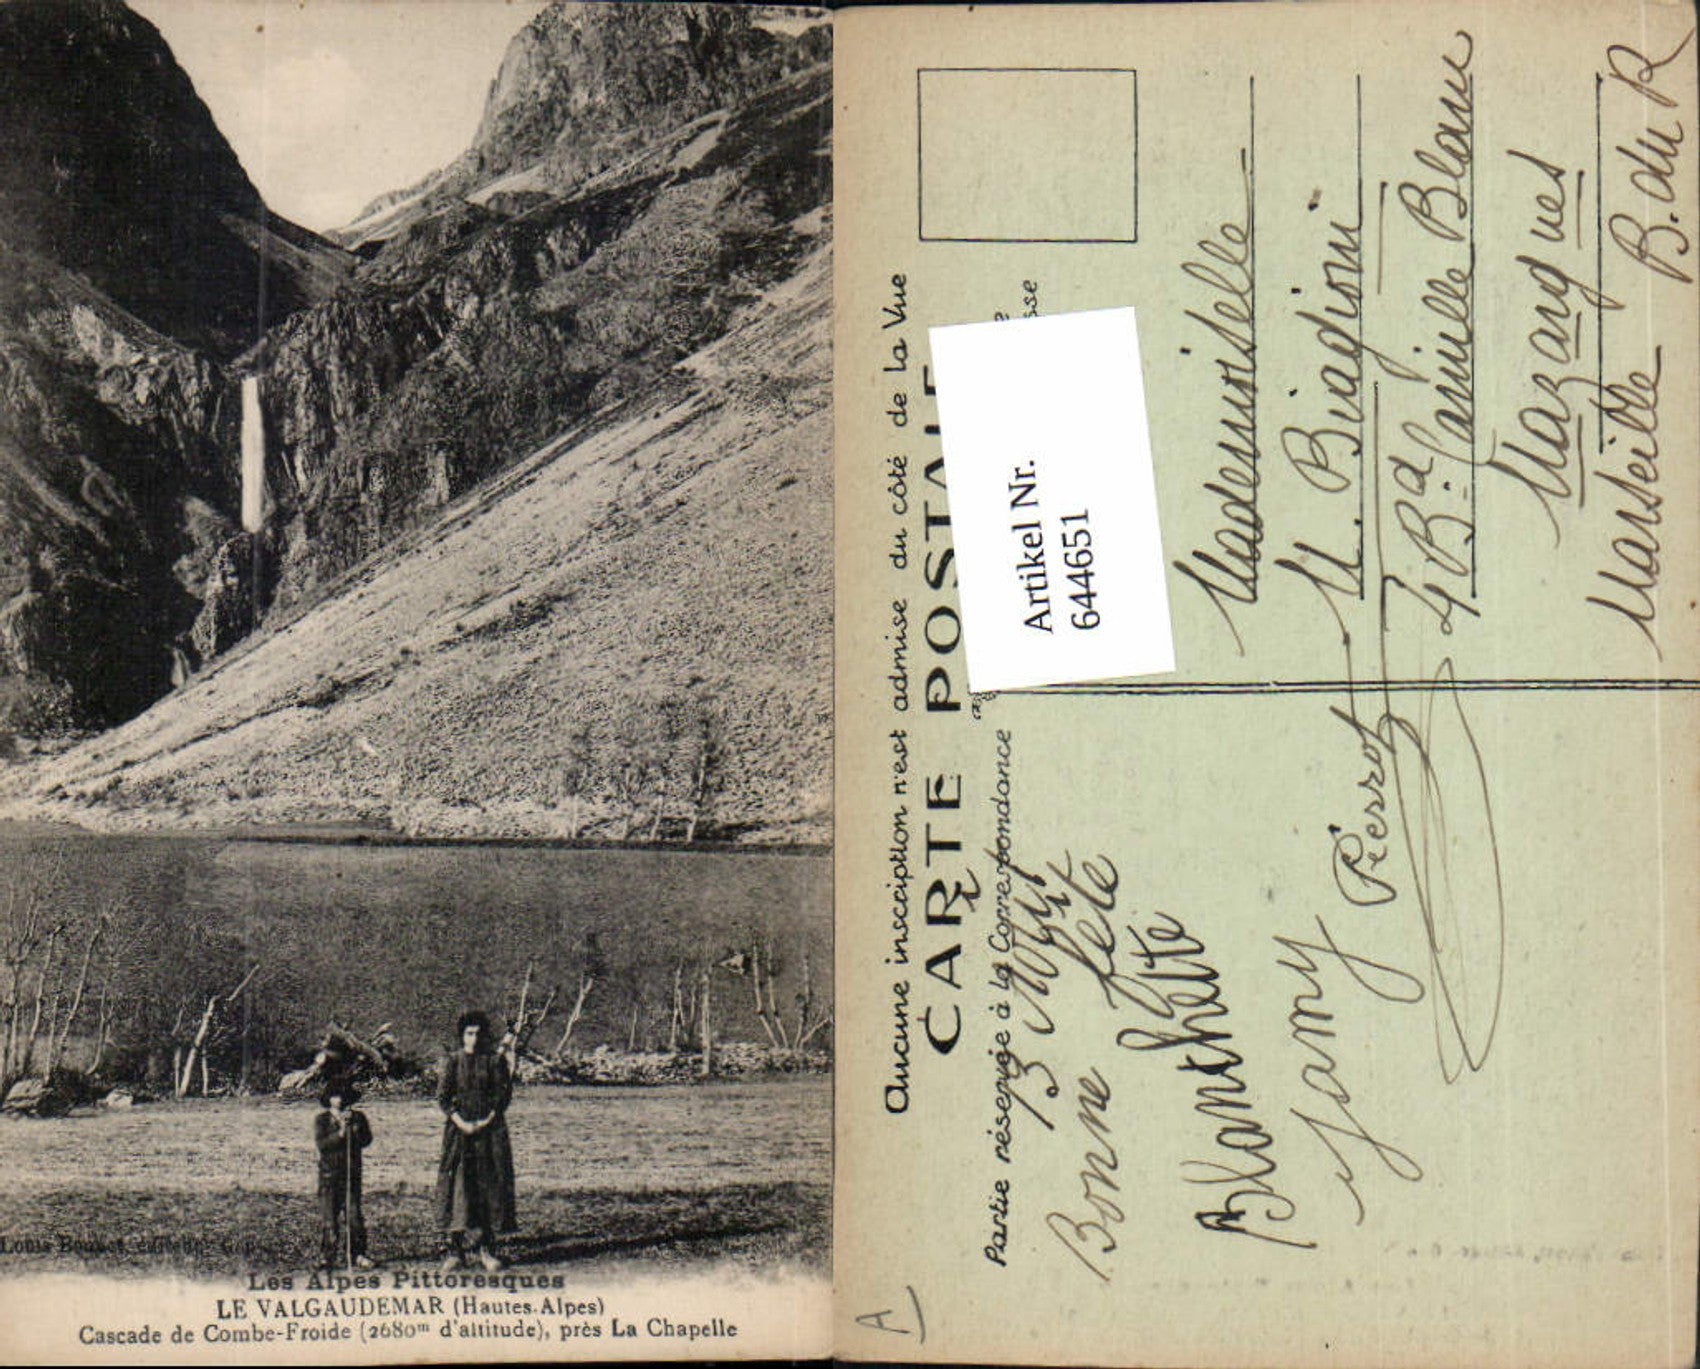 Louis Bonnet, éditeur, Gap
Les Alpes Pittoresques
LE VALGAUDEMAR (Hautes-Alpes)
Cascade de Combe-Froide (2680m d'altitude), près La Chapelle
Aucune inscription n'est admise du côté de la Vue
CARTE POSTALE
Partie réservée à la Correspondance
sse
Artikel Nr.
644651
Bonne fête
Blanchette
Jamy
Pierrot
Mademoiselle
M. Biadjoni
4 Bd Camille Blanc
Mazargues
Marseille B. du R
A